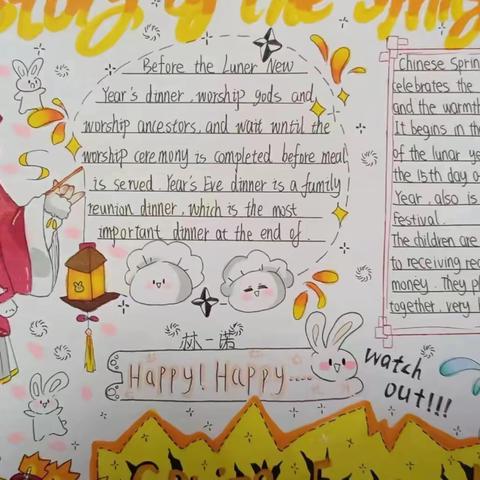 Story of the Spring
Before the Luner New
Year's dinner, worship gods and
worship ancestors, and wait wntil the
worship ceremony is completed before meal
is served. Year's Eve dinner is a fumily
reunion dinner, which is the most
important dinner at the end of.
Chinese Sprin
celebrates the
and the warmth
It begins in th
of the lunar ye
the 15th day o
Year, also is
festival.
The children are
to receiving re
money. They pl
together, very h
林一诺
Happy! Happy....
watch
out!!!